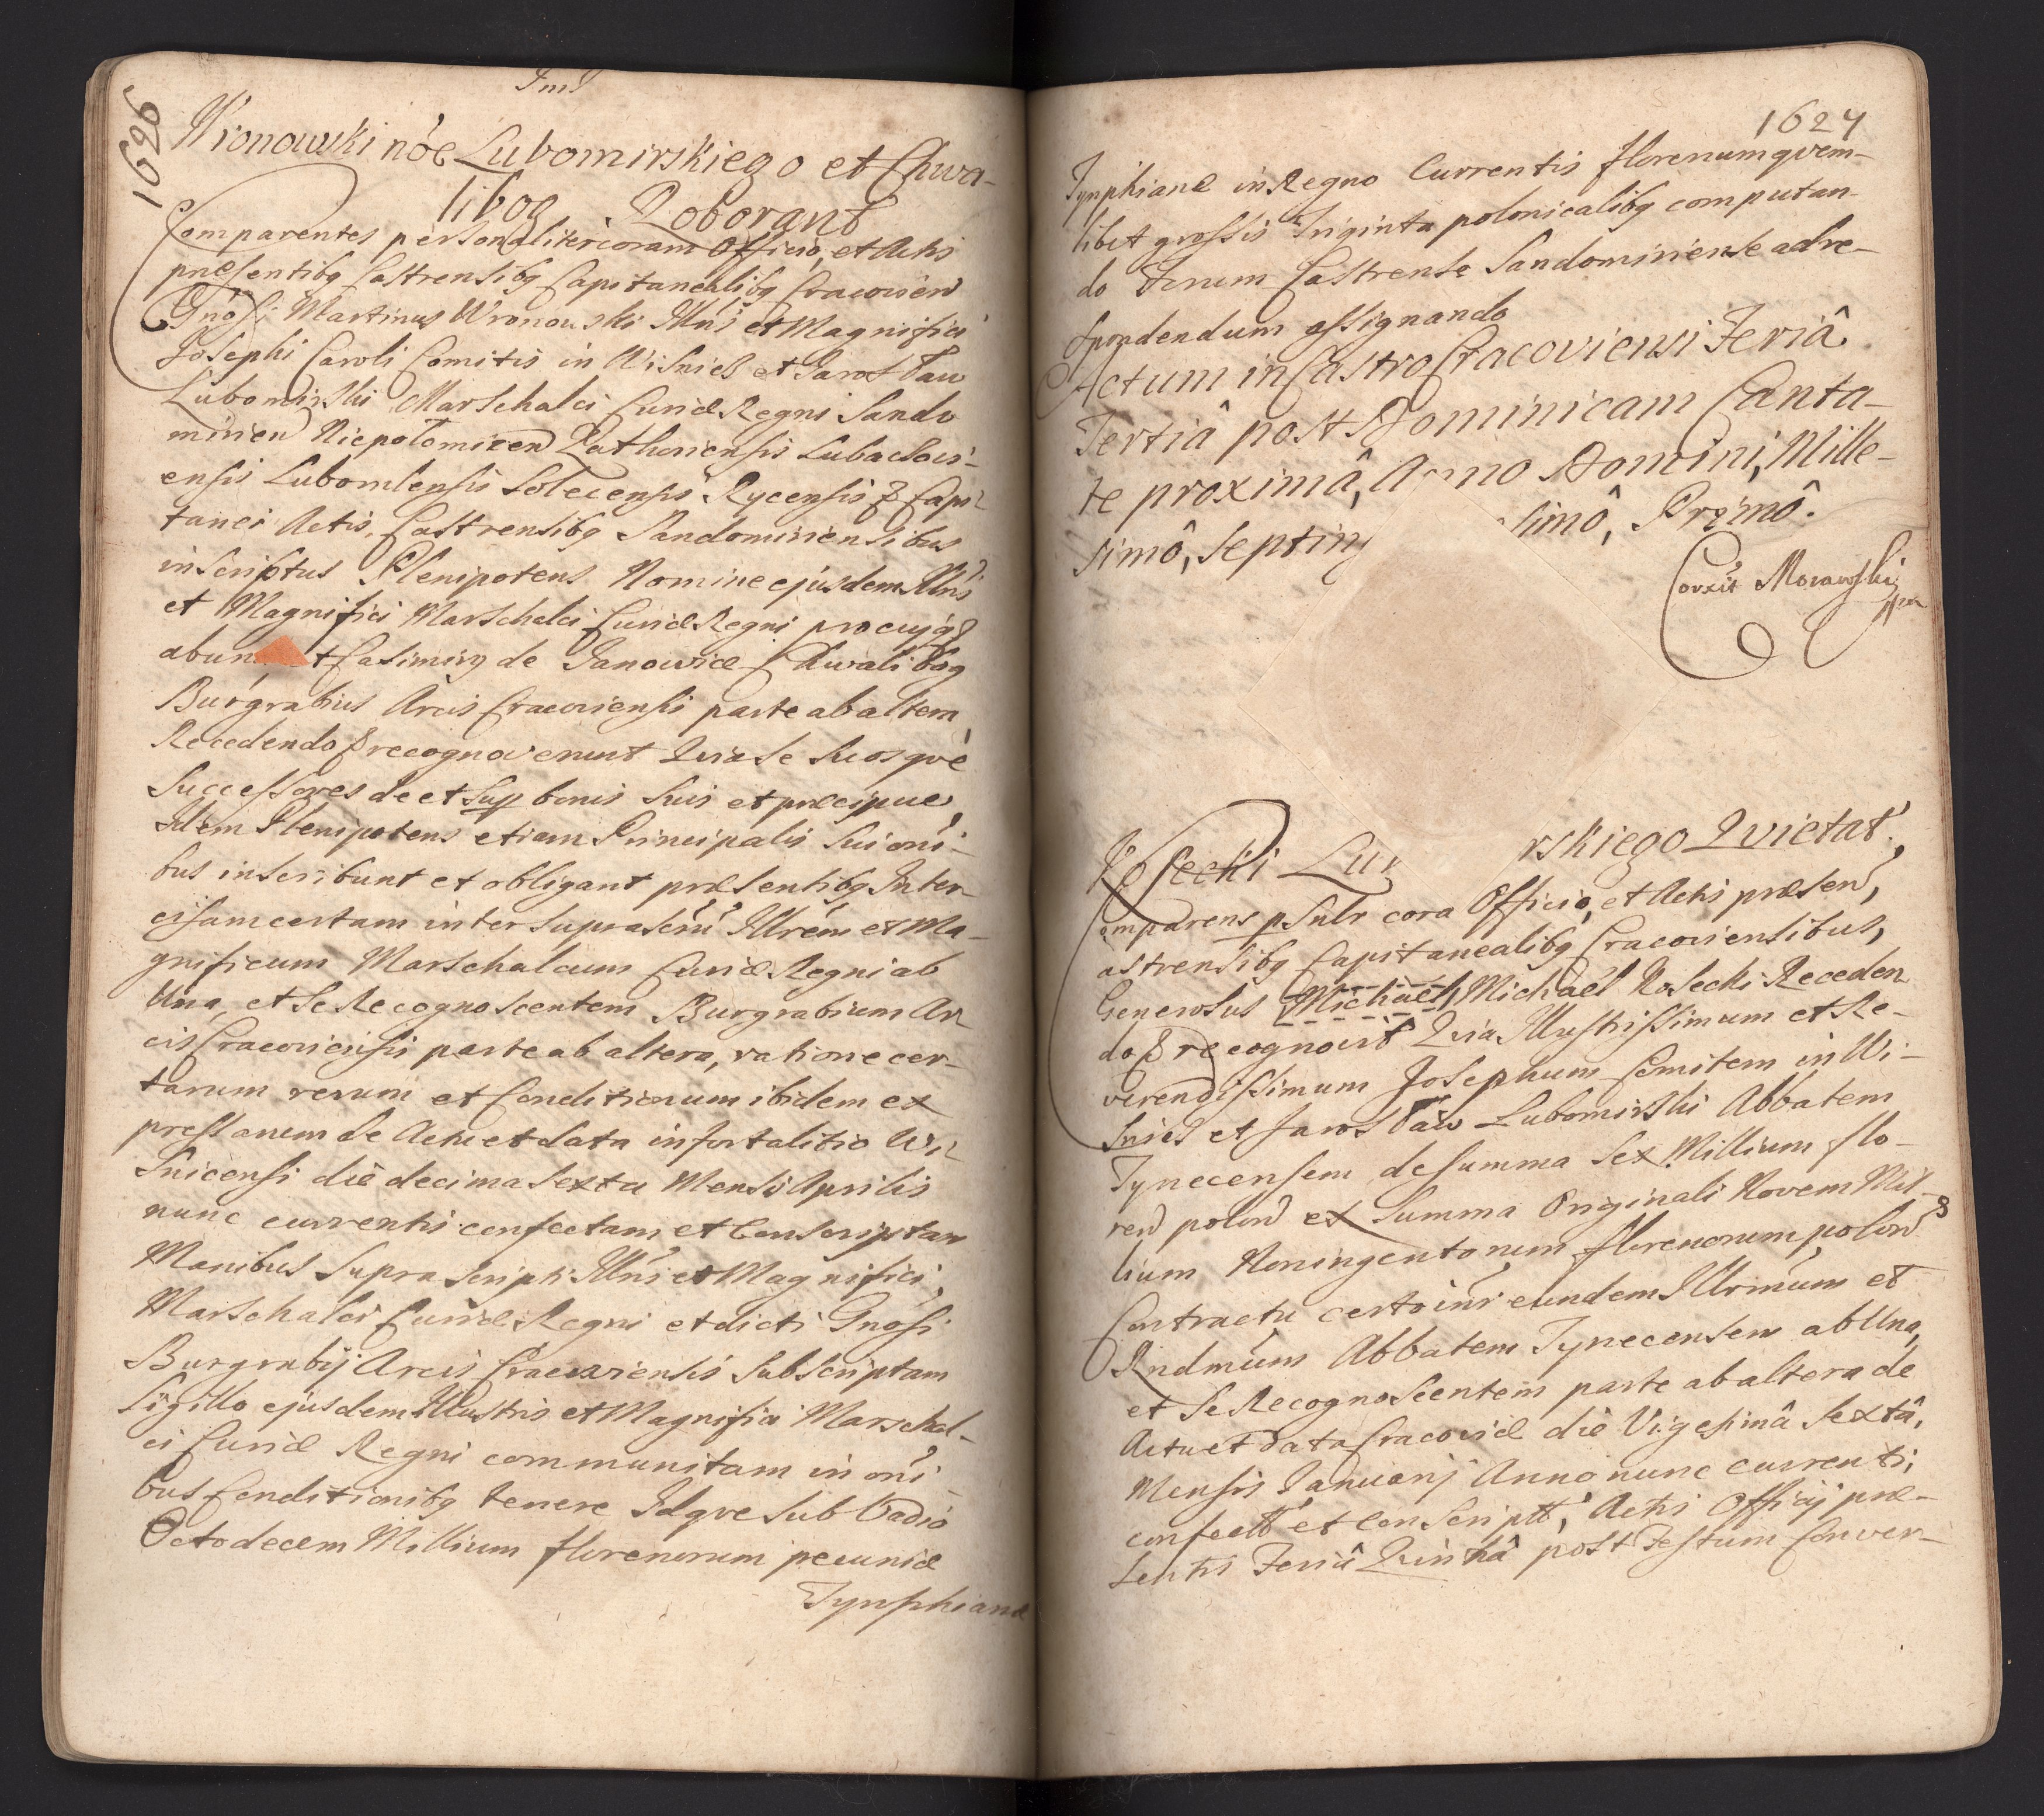 1626
Wronowski noe Lubomirskiego et Chwa-
libog Roborant
Comparentes personaliter coram Officio, et Actis
præsentibq Castrensibq Capitanealibq Cracovien
Gnosi Martinus Wronowski Illris et Magnifici
Josephi Caroli Comitis in Wisnicz et Jaroslaw
Lubomirski Marschalci Curiæ Regni Sando
mirien Niepolomicen Zathoriensis Lubaclovi-
ensis Lubomlensis Solecensis Rycensis & Capi-
tanei Actis, Castrensibq Sandomiriensibus
inscriptus Plenipotens Nomine ejusdem Illris
et Magnifici Marschalci Curiæ Regni pro cujq
abuna et Casimirq de Janowice Chwalibog
Burgrabius Arcis Cracoviensis parte ab altera
Recedendo & recognoverunt Quia Se Suosqve
Successores de et Sup bonis Suis et præcipue,
Idem Plenipotens etiam Principalis Sui oni-
bus inscribunt et obligant præsentibq Inter-
cisam certam inter suprascrm Illrem et Ma-
gnificum Marschalcum Curiæ Regni ab
Una, et Se Recognoscentem Burgrabium Ar-
cis Cracoviensis parte ab altera, ratione cer-
tarum rerum et Conditionum ibidem ex
pressarum de Actu et data in fortalitio Wi-
snicensi die decima Sexta Mensis Aprilis
nunc currentis confectam, et Conscriptam
Manibus Supra scripti Illris et Magnifici,
Marschalci Curiæ Regni et dicti Gnosi
Burgrabij Arcis Cracoviensis Subscriptam
Sigillo ejusdem Illustris et Magnifici Marschal-
ci Curiæ Regni communitam in oni-
bus Conditionibq tenere Idqve Sub Vadio
Octodecem Millium florenorum pecuniæ
Tynphianæ
1627
Tynphianæ in Regno Currentis florenum qvem-
libet grossis Triginta polonicalibq computan-
do Forum Castrense Sandomiriense ad re-
spondendum assignando
Actum in Castro Cracoviensi Feriâ
Tertiâ post Dominicam Canta-
te proximâ, Anno Domini, Mille-
simô, Septin simô, Primô.
Corexit Morawski
Kosecki Lu rskiego Qvietat
Comparens pSnlr cora Officio, et Actis præsen,
astrensibq Capitanealibq Cracoviensibus,
Generosus Michael, Michaël Kosecki Receden-
do & recognovit Quia Illustrissimum et Re-
verendissimum Josephum Comitem in Wi-
snicz et Jaroslaw Lubomirski Abbatem
Tynecensem de Summa Sex Millium flo-
ren polon ex Summa Originali Novem Mil-
lium Noningentorum florenorum polon
Contractu certo inr eundem Illrmum et
Rndmum Abbatem Tynecensem ab Una,
et Se Recognoscentem parte ab altera de
Actu et data Cracoviæ die Vigesimâ Sextâ,
Mensis Januarij Anno nunc currenti,
confectt et conscriptt, Actis Officij præ-
sentis Feriâ Quintâ post Festum Conver-